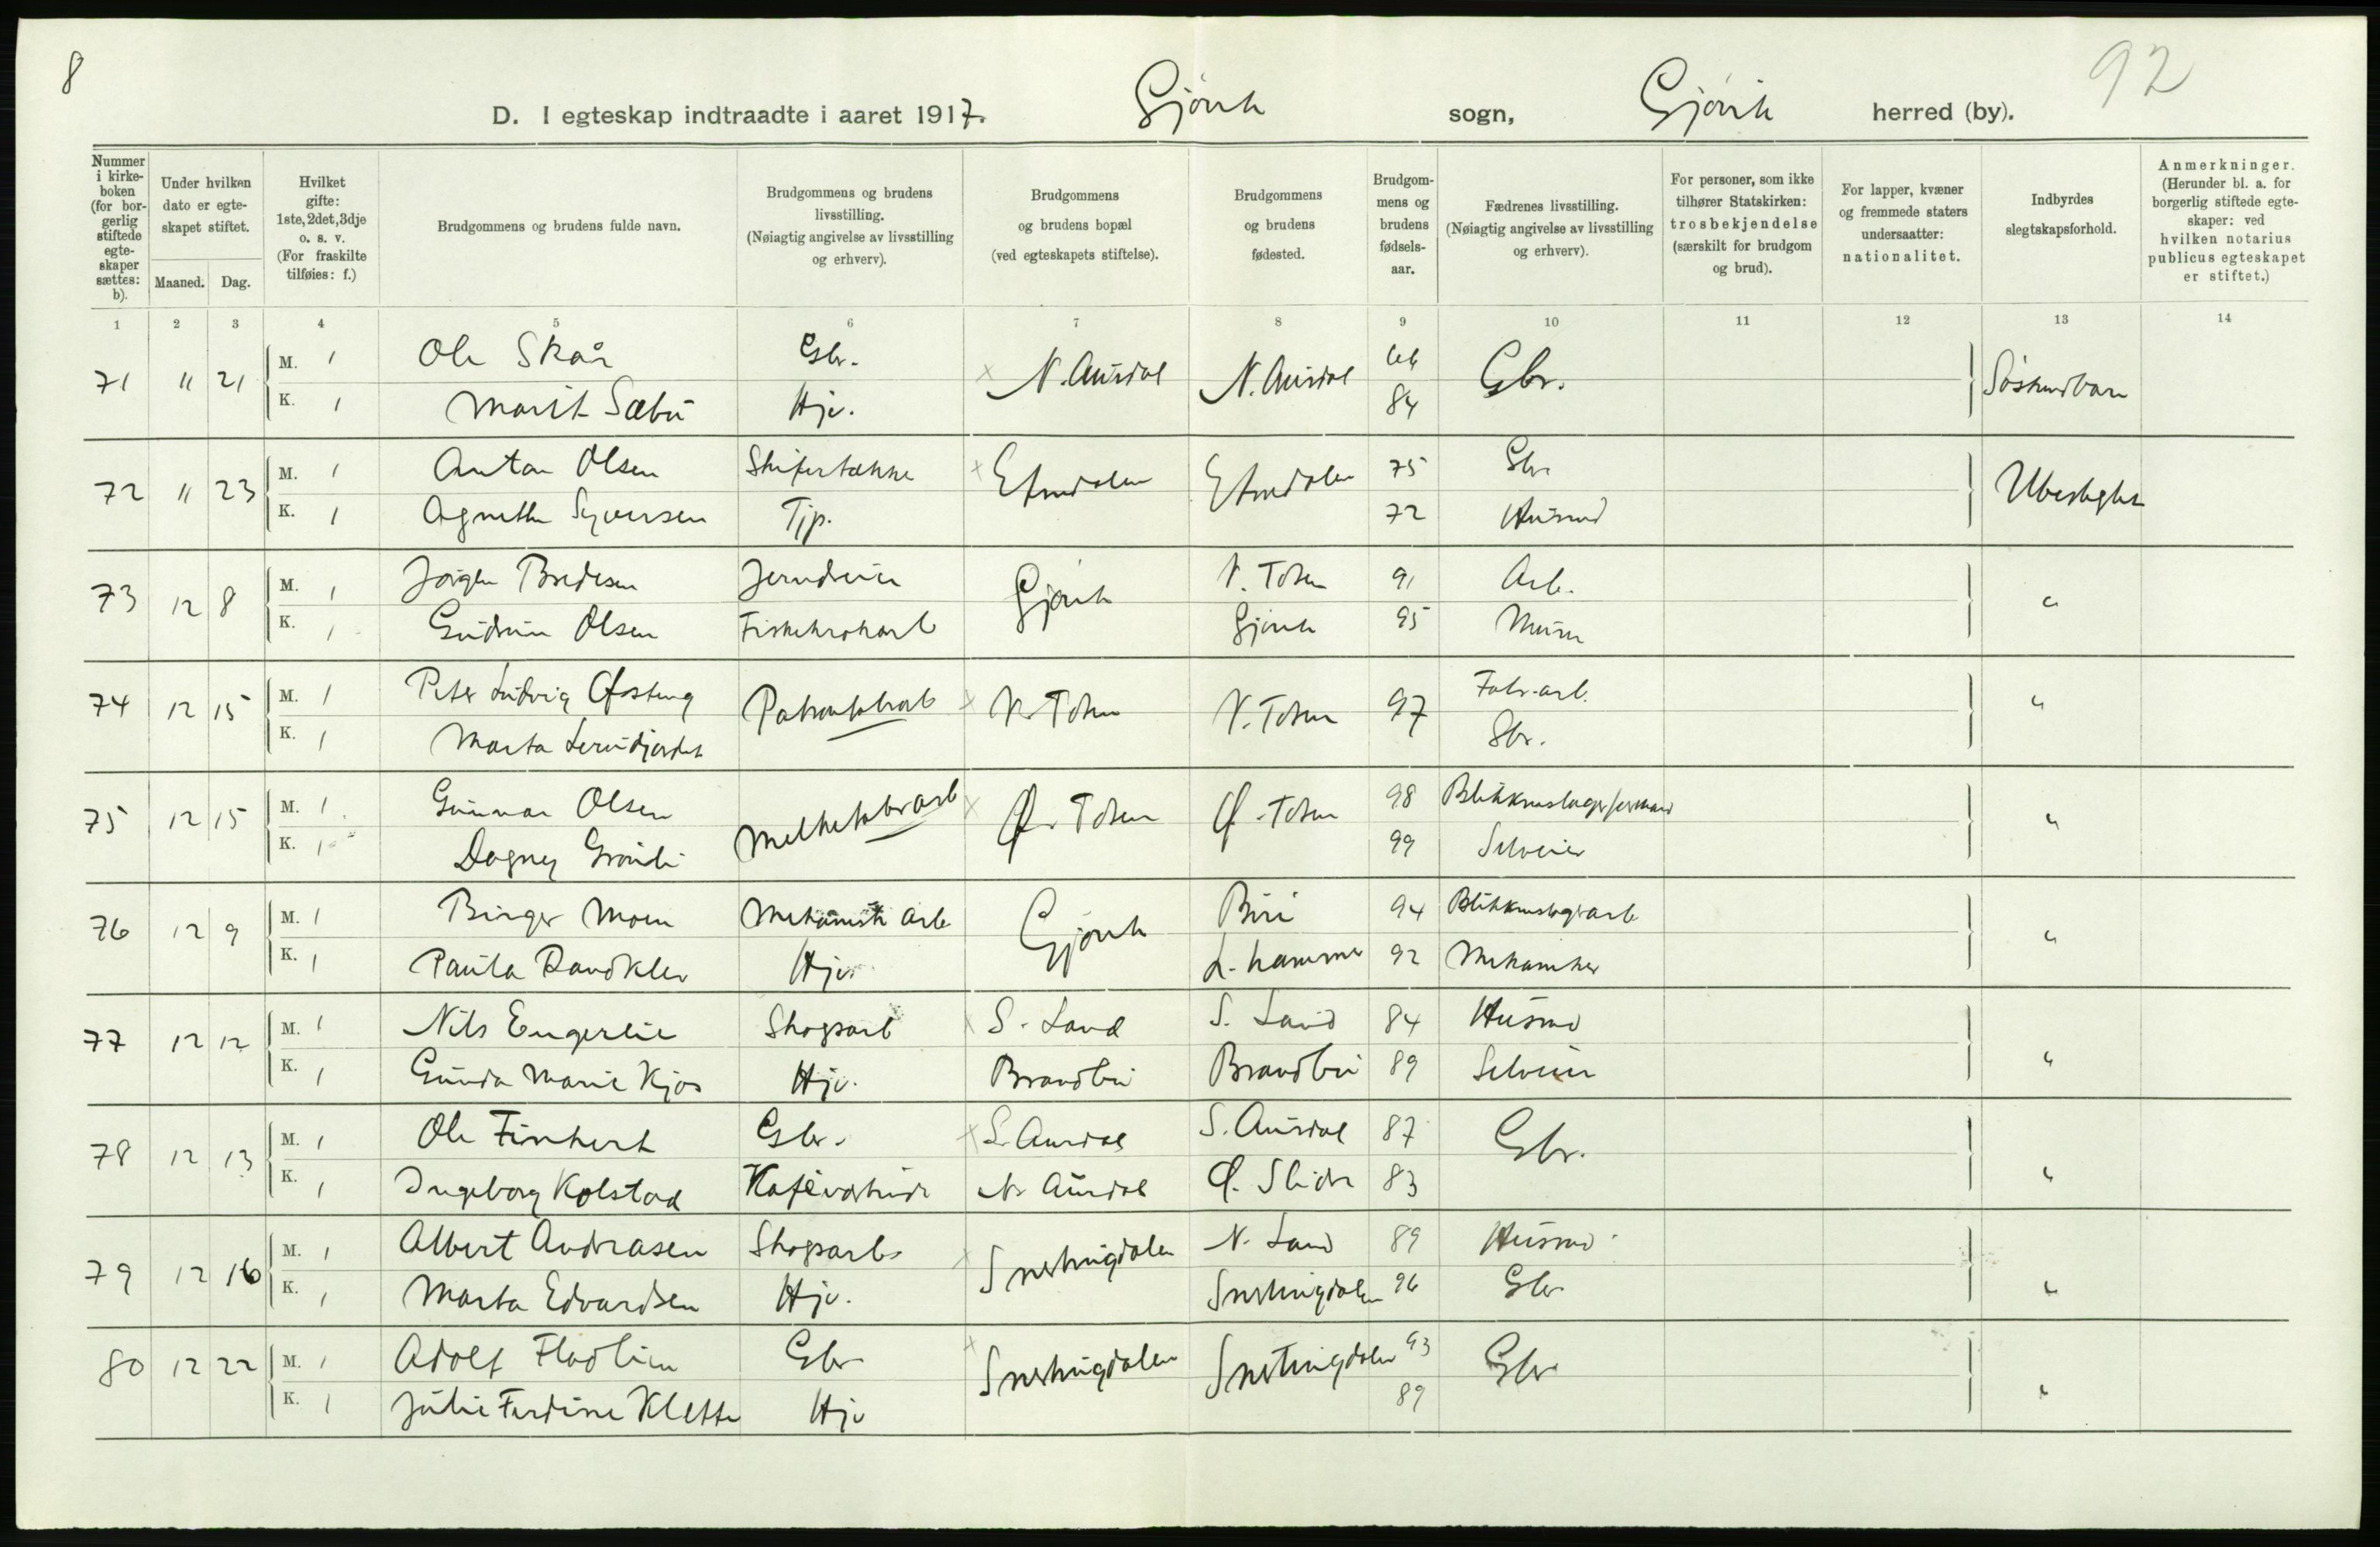 8
92
D. I egteskap indtraadte i aaret 1917. Gjøvik sogn, Gjøvik herred (by).
Nummer i kirke-boken (for bor-gerlig stiftede egte-skaper sættes: b).
Under hvilken dato er egte-skapet stiftet.
Maaned. Dag.
Hvilket gifte: 1ste, 2det, 3dje o. s. v. (For fraskilte tilføies: f.)
Brudgommens og brudens fulde navn.
Brudgommens og brudens livsstilling. (Nøiagtig angivelse av livsstilling og erhverv).
Brudgommens og brudens bopæl (ved egteskapets stiftelse).
Brudgommens og brudens fødested.
Brudgom-mens og brudens fødsels-aar.
Fædrenes livsstilling. (Nøiagtig angivelse av livsstilling og erhverv).
For personer, som ikke tilhører Statskirken: trosbekjendelse (særskilt for brudgom og brud).
For lapper, kvæner og fremmede staters undersaatter: nationalitet.
Indbyrdes slegtskapsforhold.
Anmerkninger. (Herunder bl. a. for borgerlig stiftede egte-skaper: ved hvilken notarius publicus egteskapet er stiftet.)
1 2 3 4 5 6 7 8 9 10 11 12 13 14
71 11 21 M. 1 Ole Skår Gbr. N. Aurdal N. Aurdal Gbr. Søskendbarn
K. 1 Marit Sæbu Hjv. 84
72 11 23 M. 1 Anton Olsen Skifertække Etnedalen Etnedalen 75 Gbr Ubeslegtet
K. 1 Agnethe Syversen Tjp. 72 Husmd
73 12 8 M. 1 Jørgen Bredesen Jerndreier Gjøvik V. Toten 91 Arb. "
K. 1 Gudrun Olsen Fiskekrokarb Gjøvik 95 Murer
74 12 15 M. 1 Peter Ludvig Patronfabrarb V. Toten V. Toten 97 Fabr.arb. "
K. 1 Marta Gbr.
75 12 15 M. 1 Gunnar Olsen Melkefabrarb Ø. Toten Ø. Toten 98 "
K. 1 Dagny 99 Selveier
76 12 9 M. 1 Birger Moen Mekanisk arb Gjøvik Biri 94 "
K. 1 Paula Randklev Hjv. L. hammer 92 Mekaniker
77 12 12 M. 1 Nils Engerlie Skogsarb S. Land S. Land 84 Husmd "
K. 1 Gunda Marie Kjos Hjv. Brandbu Brandbu 89 Selveier
78 12 13 M. 1 Ole Gbr. S. Aurdal S. Aurdal 87 Gbr. "
K. 1 Ingeborg Kolstad Kaféværtinde N. Aurdal Ø. Slidre 83
79 12 16 M. 1 Albert Andreasen Skogsarb. Snertingdalen N. Land 89 Husmd "
K. 1 Marta Edvardsen Hjv. Snertingdalen 96 Gbr
80 12 22 M. 1 Adolf Fladlien Gbr Snertingdalen Snertingdalen 93 Gbr "
K. 1 Julie Ferdine Klette Hjv 89